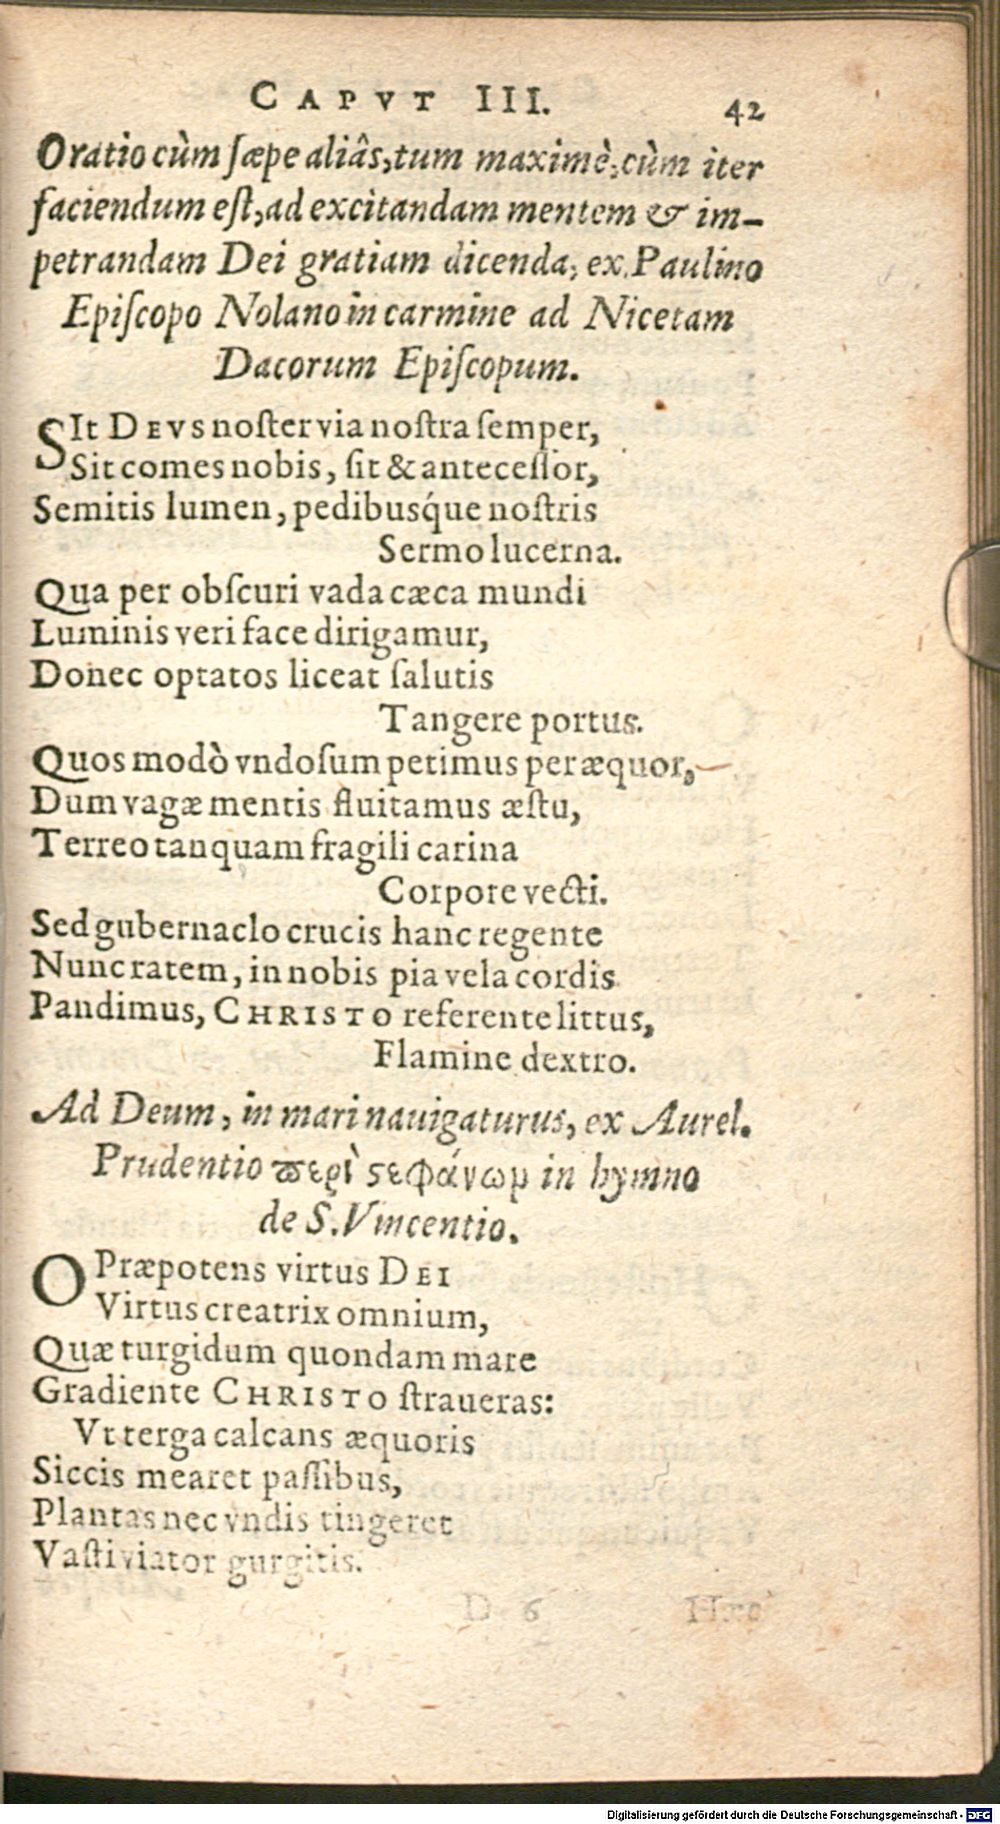 CAPVT III. 42
Oratio cùm ſæpe aliâs, tum maximè, cùm iter
faciendum eſt, ad excitandam mentem & im-
petrandam Dei gratiam dicenda, ex Paulino
Epiſcopo Nolano in carmine ad Nicetam
Dacorum Epiſcopum.
SIt DEVS noſter via noſtra ſemper,
Sit comes nobis, ſit & anteceſſor,
Semitis lumen, pedibusq́ue noſtris
Sermo lucerna.
Qua per obſcuri vada cæca mundi
Luminis veri face dirigamur,
Donec optatos liceat ſalutis
Tangere portus.
Quos modò vndoſum petimus per æquor,
Dum vagæ mentis fluitamus æſtu,
Terreo tanquam fragili carina
Corpore vecti.
Sed gubernaclo crucis hanc regente
Nunc ratem, in nobis pia vela cordis
Pandimus, CHRISTO referente littus,
Flamine dextro.
Ad Deum, in mari nauigaturus, ex Aurel.
Prudentio ϖερὶ ϛεφάνωμ in hymno
de S. Vincentio.
O Præpotens virtus DEI
Virtus creatrix omnium,
Quæ turgidum quondam mare
Gradiente CHRISTO ſtraueras:
Vt terga calcans æquoris
Siccis mearet paſſibus,
Plantas nec vndis tingeret
Vaſti viator gurgitis.
D 6 Hæc
Digitalisierung gefördert durch die Deutsche Forschungsgemeinschaft - DFG